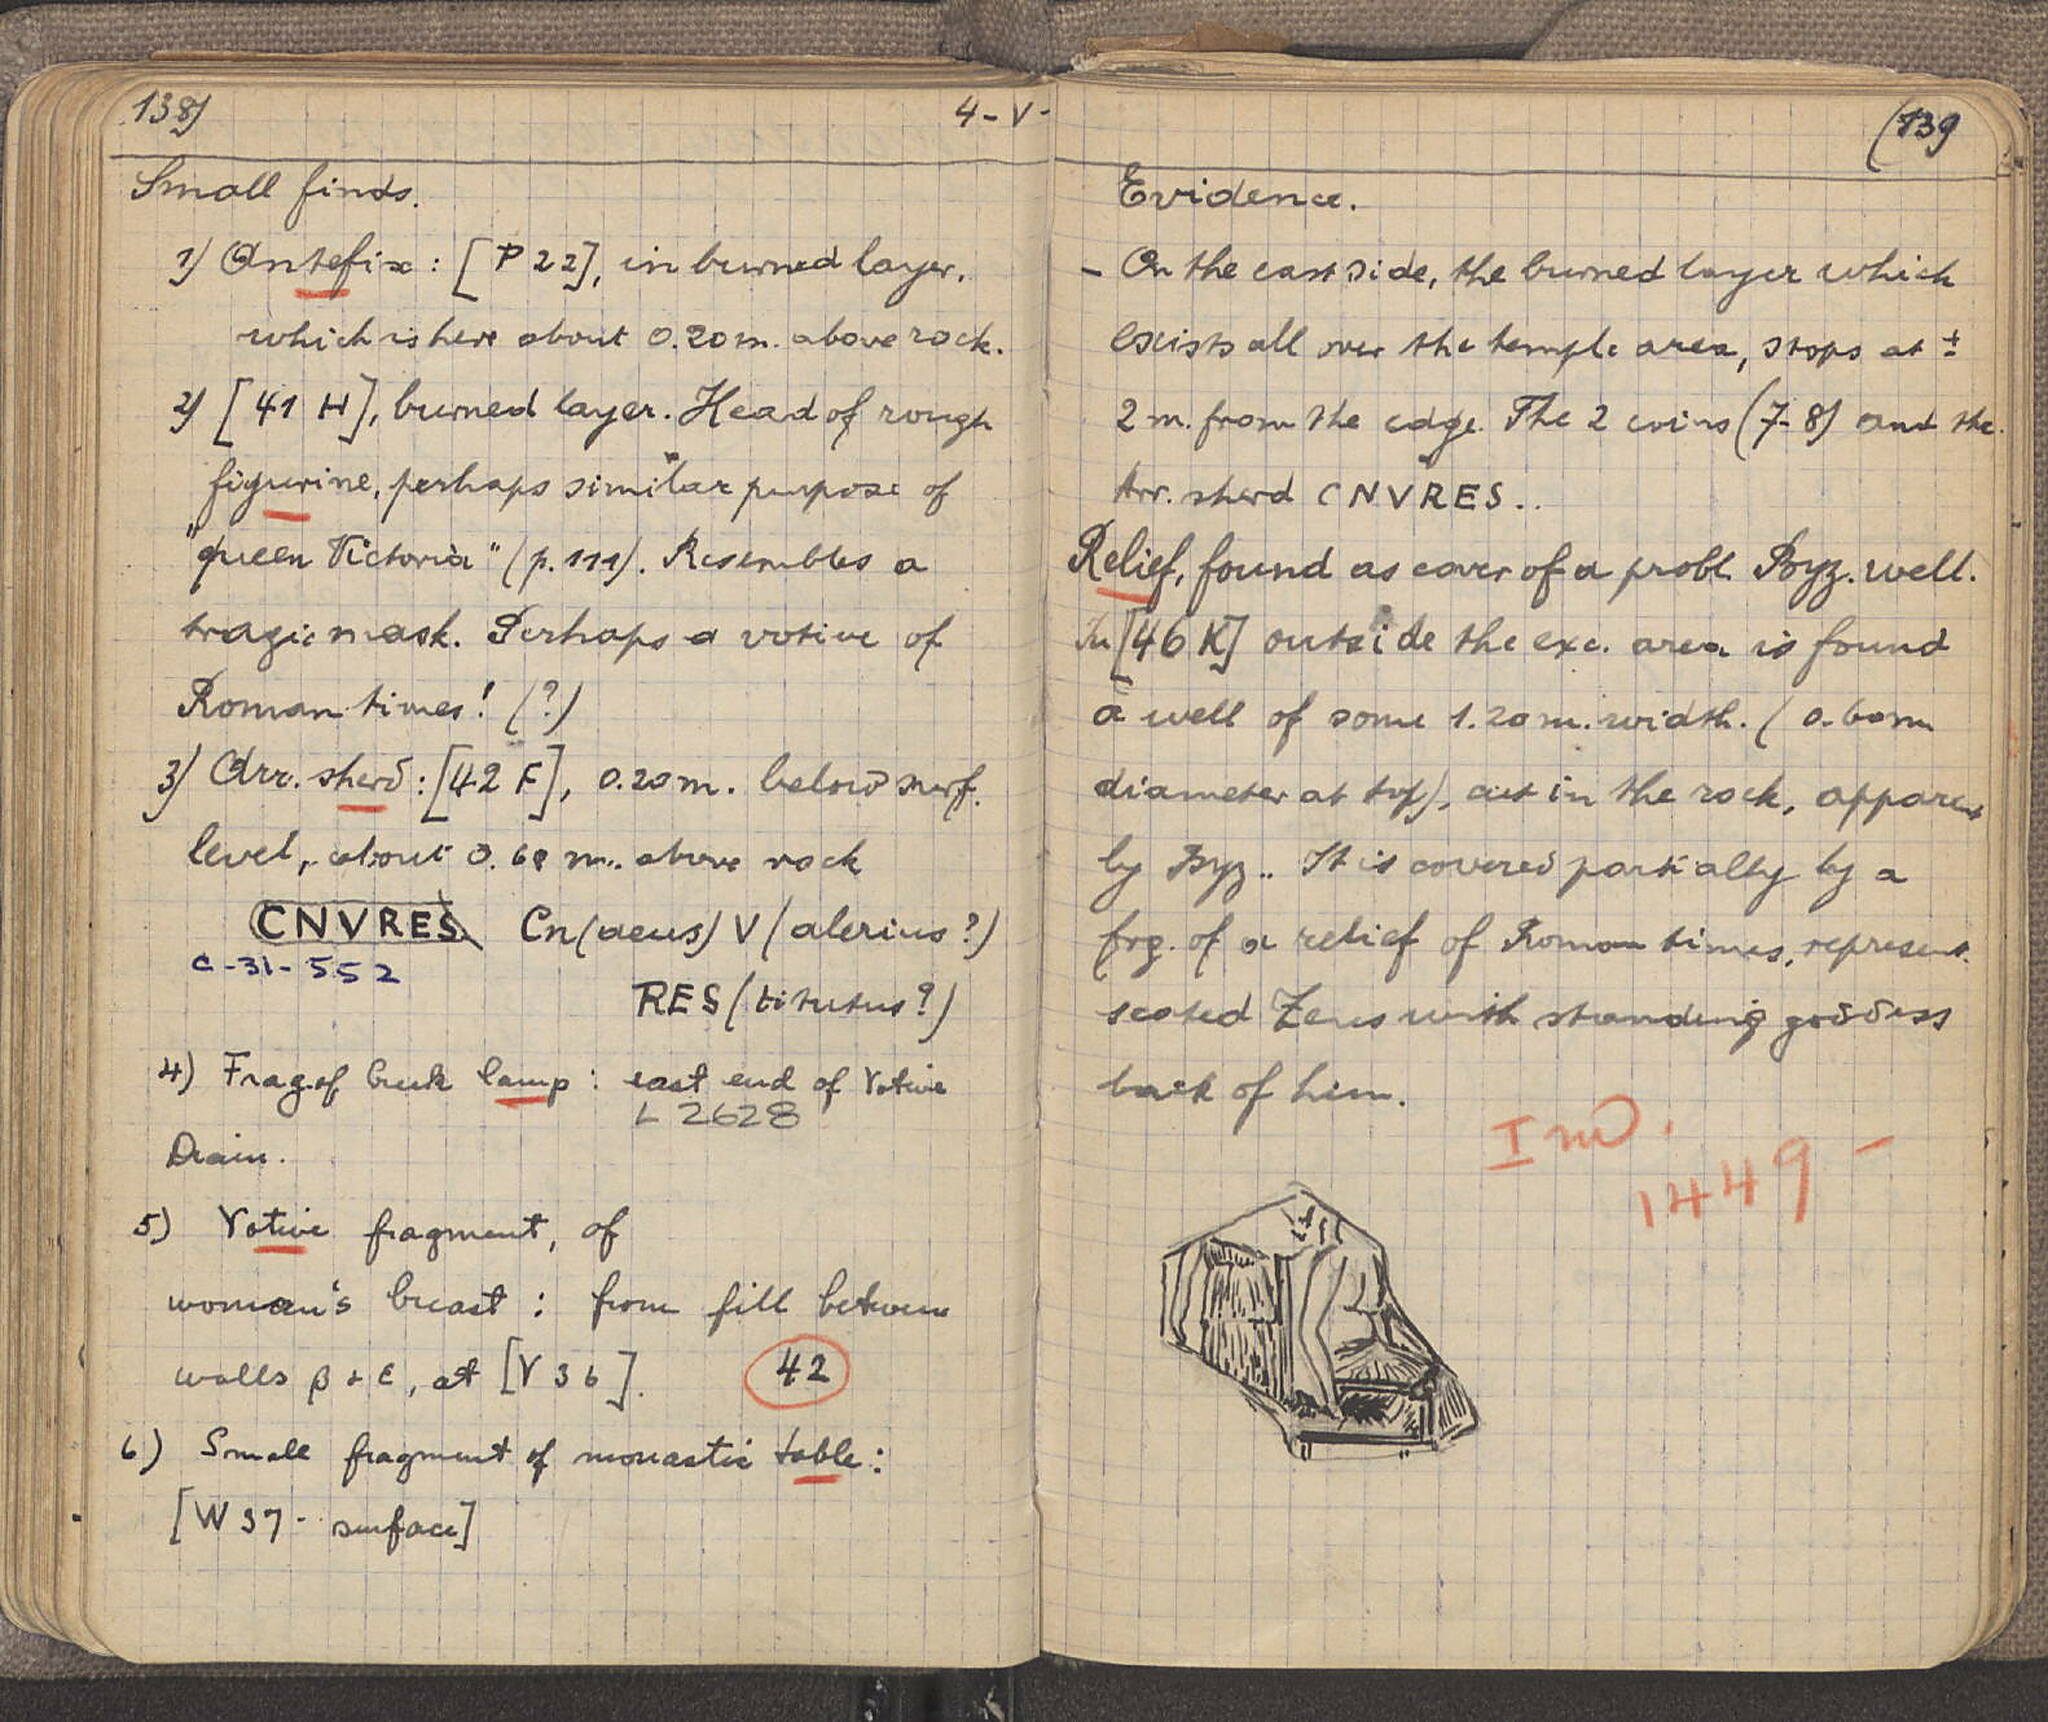 138)
4-V-
Small finds.
1) Antefix: [P 22], in burned layer,
which is here about 0.20 m. above rock.
2) [41 H], burned layer. Head of rough
figurine, perhaps similar purpose of
"queen Victoria" (p. 111). Resembles a
tragic mask. Perhaps a votive of
Roman times! (?)
3) Arr. sherd: [42 F], 0.20 m. below surf.
level, about 0.60 m. above rock
CNVRES Cn(aeus) V(alerius?)
C-31-552
RES(titutus?)
4) Frag. of Greek lamp: east end of Votive
L 2628
Drain.
5) Votive fragment, of
woman's breast: from fill between
walls β + ε, at [V 36]. 42
6) Small fragment of monastic table:
[W 37 - surface]
(139
Evidence.
- On the east side, the burned layer which
exists all over the temple area, stops at ±
2 m. from the edge. The 2 coins (7-8) and the
Arr. sherd CNVRES..
Relief, found as cover of a probl. Byz. well.
In [46 K] outside the exc. area is found
a well of some 1.20 m. width. (0.60 m
diameter at top), cut in the rock, apparent
by Byz.. It is covered partially by a
frg. of a relief of Roman times, represent.
seated Zeus with standing goddess
back of him.
Inv.
1449 -